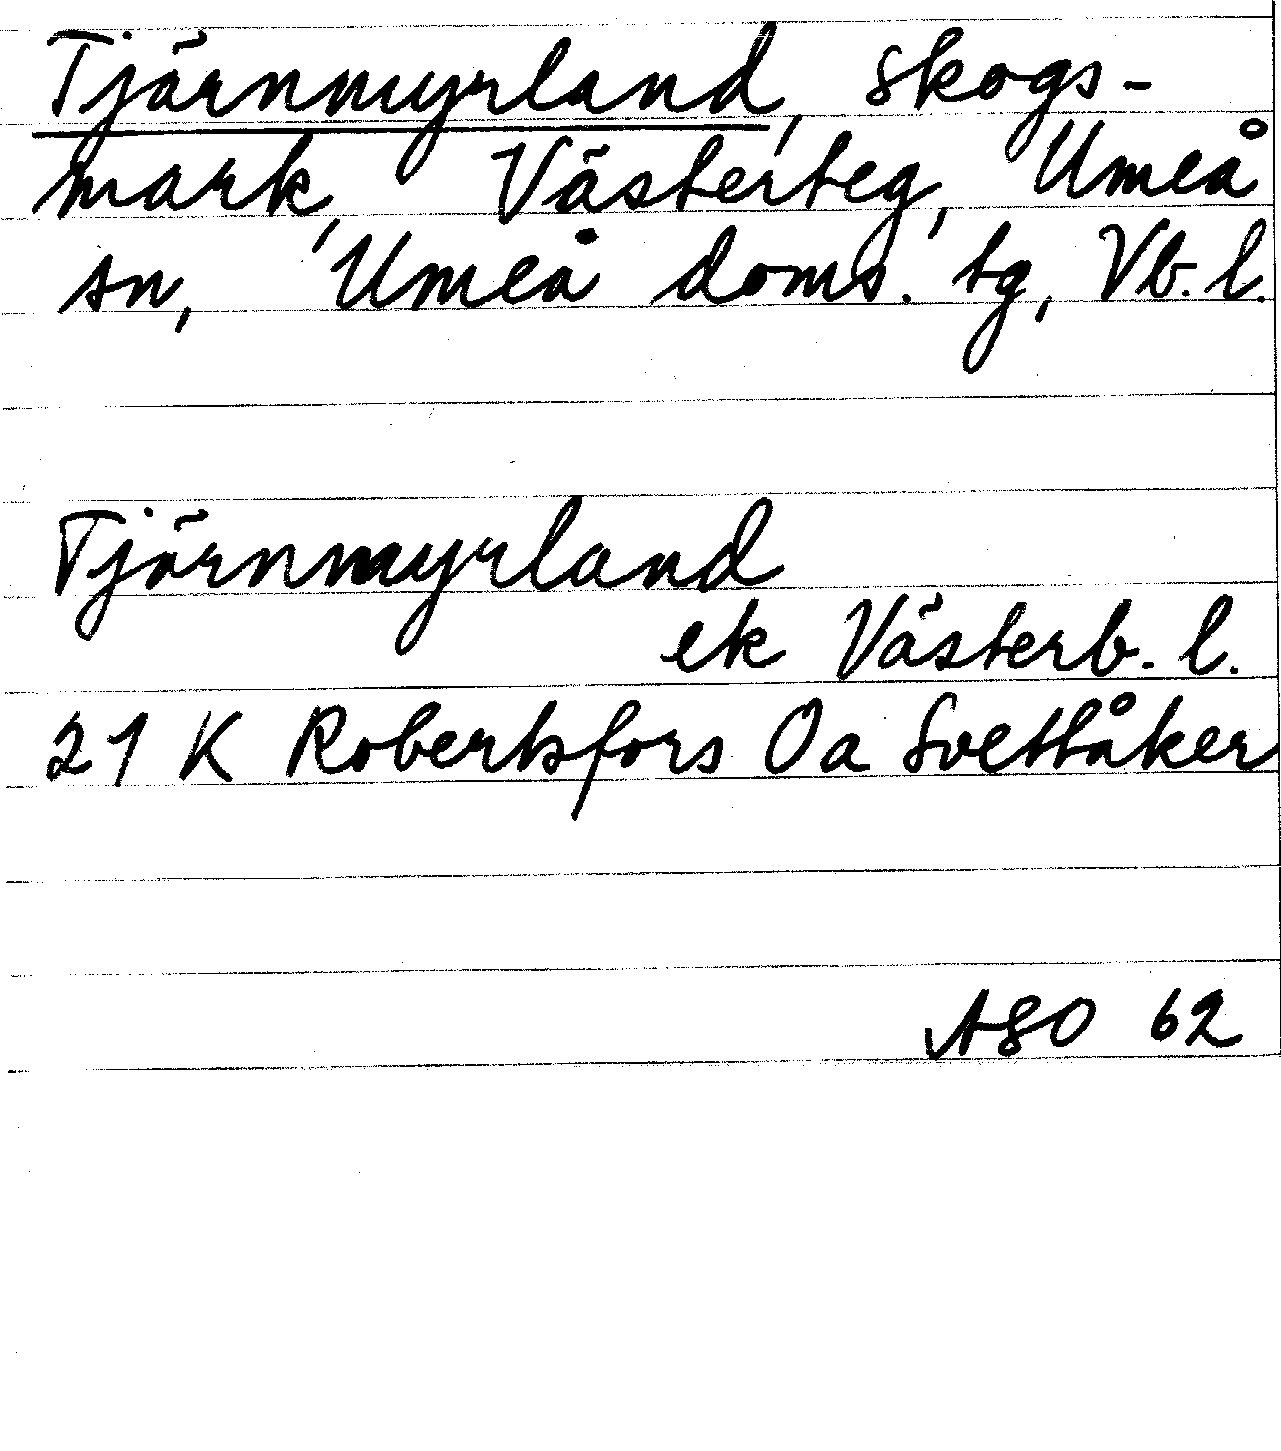 Tjärnmyrland, skogs-
mark, Västerteg, Umeå
sn, Umeå doms. tg, Vb. l.
Tjärnmyrland
ek Västerb. l.
21 K Robertsfors Oa Svettåker
ASO 62